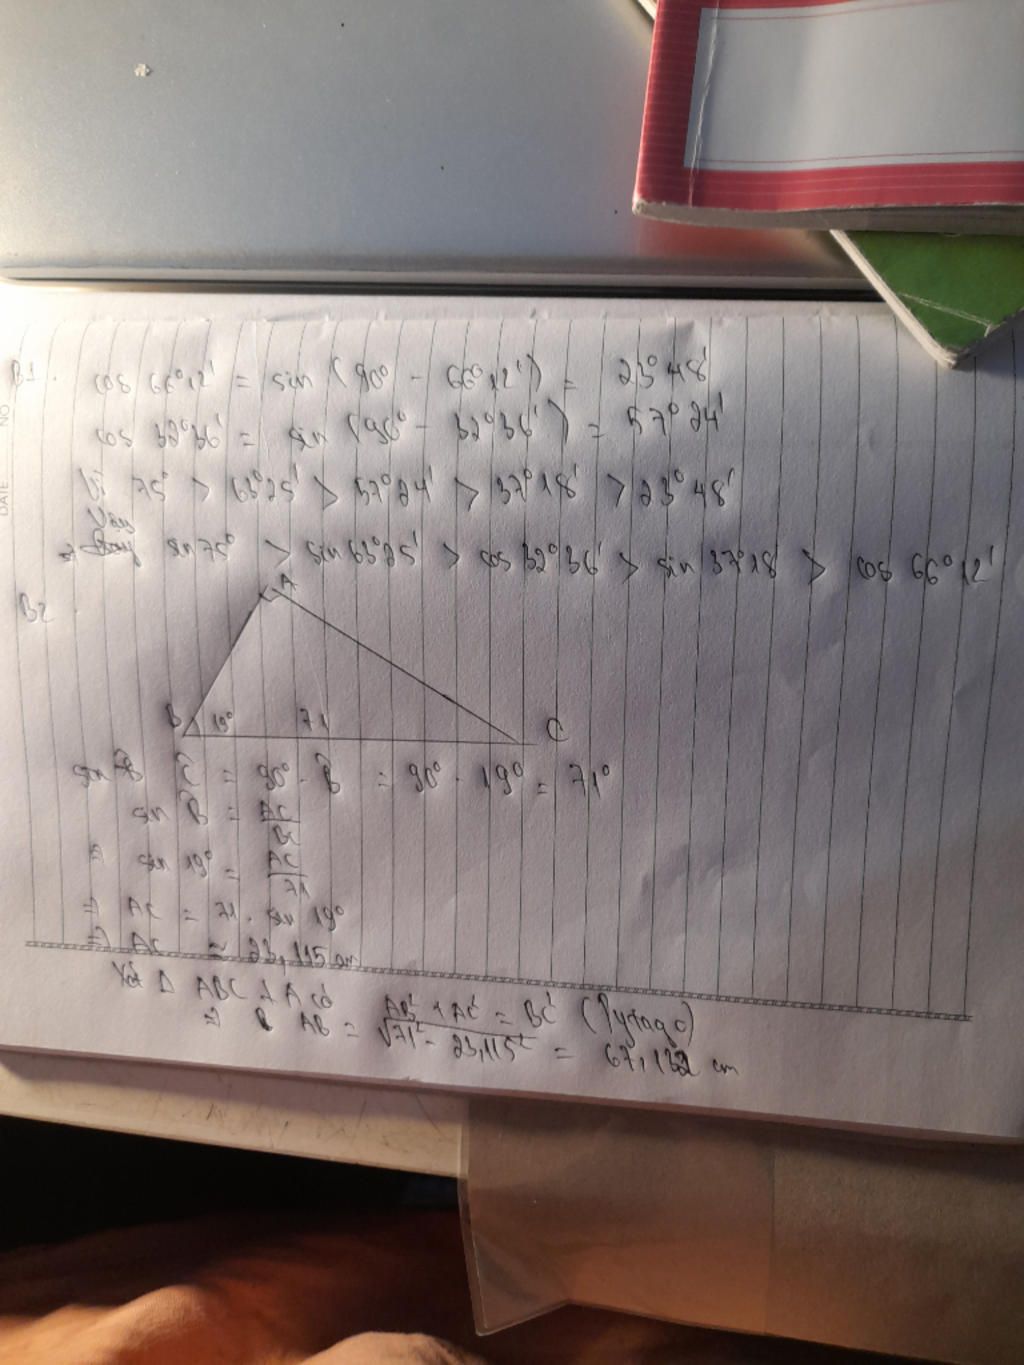 B1. cos 66°12' = sin (90° - 66°12') = 23°48'
cos 32°36' = sin (90° - 32°36') = 57°24'
Vì 75° > 63°25' > 57°24' > 37°18' > 23°48'
Vậy
⇒ sin 75° > sin 63°25' > cos 32°36' > sin 37°18 > cos 66°12'
B2.
A
B 19° 71 C
Ĉ = 90° - B̂ = 90° - 19° = 71°
sin B̂ = AC/BC
⇒ sin 19° = AC/71
⇒ AC = 71 . sin 19°
⇒ AC ≈ 23,115 cm
Xét Δ ABC ⊥ A có AB² + AC² = BC² (Pytago)
⇒ AB = √71² - 23,115² = 67,132 cm
DATE NO